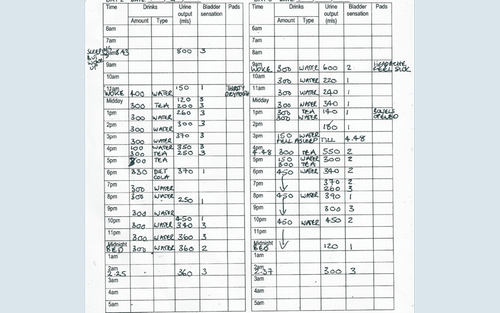 Time Drinks Urine output (mls) Bladder sensation Pads
Amount Type
6am
7am
8am 8.43 800 3
SLEEPING
WOKE UP
9am
10am
11am 150 1 THIRSTY
WOKE 400 WATER
Midday 120 3
300 TEA 200 3
1pm 260 3
300 WATER
2pm 300 3
300 WATER
3pm 370 3
300 WATER
4pm 400 WATER 350 3
300 TEA 250 3
5pm 300 TEA
6pm 330 DIET COLA 370 1
7pm
300 WATER
8pm 300 WATER 250 1
9pm
300 WATER
10pm 450 1
300 WATER 340 3
11pm
300 WATER 360 3
Midnight
BED 300 WATER 360 2
1am
2am
2.25 360 3
3am
4am
5am
Time Drinks Urine output (mls) Bladder sensation Pads
Amount Type
6am
7am
8am
9am
WOKE 300 WATER 600 2 HEADACHE FEEL SICK
10am
300 WATER 220 1
11am
300 WATER 240 1
Midday
300 WATER 340 1
1pm 300 TEA 140 1 BOWELS OPENED
300 WATER
2pm 180 1
3pm 150 WATER
FELL ASLEEP TILL 4.48
4pm
4.48 300 TEA 550 2
5pm 150 WATER 300 2
300 TEA
6pm 450 WATER 340 2
7pm 370 2
260 3
8pm 450 WATER 390 1
9pm
300 3
10pm 450 WATER 450 2
11pm
Midnight
BED 120 1
1am
2am
2.37 300 3
3am
4am
5am